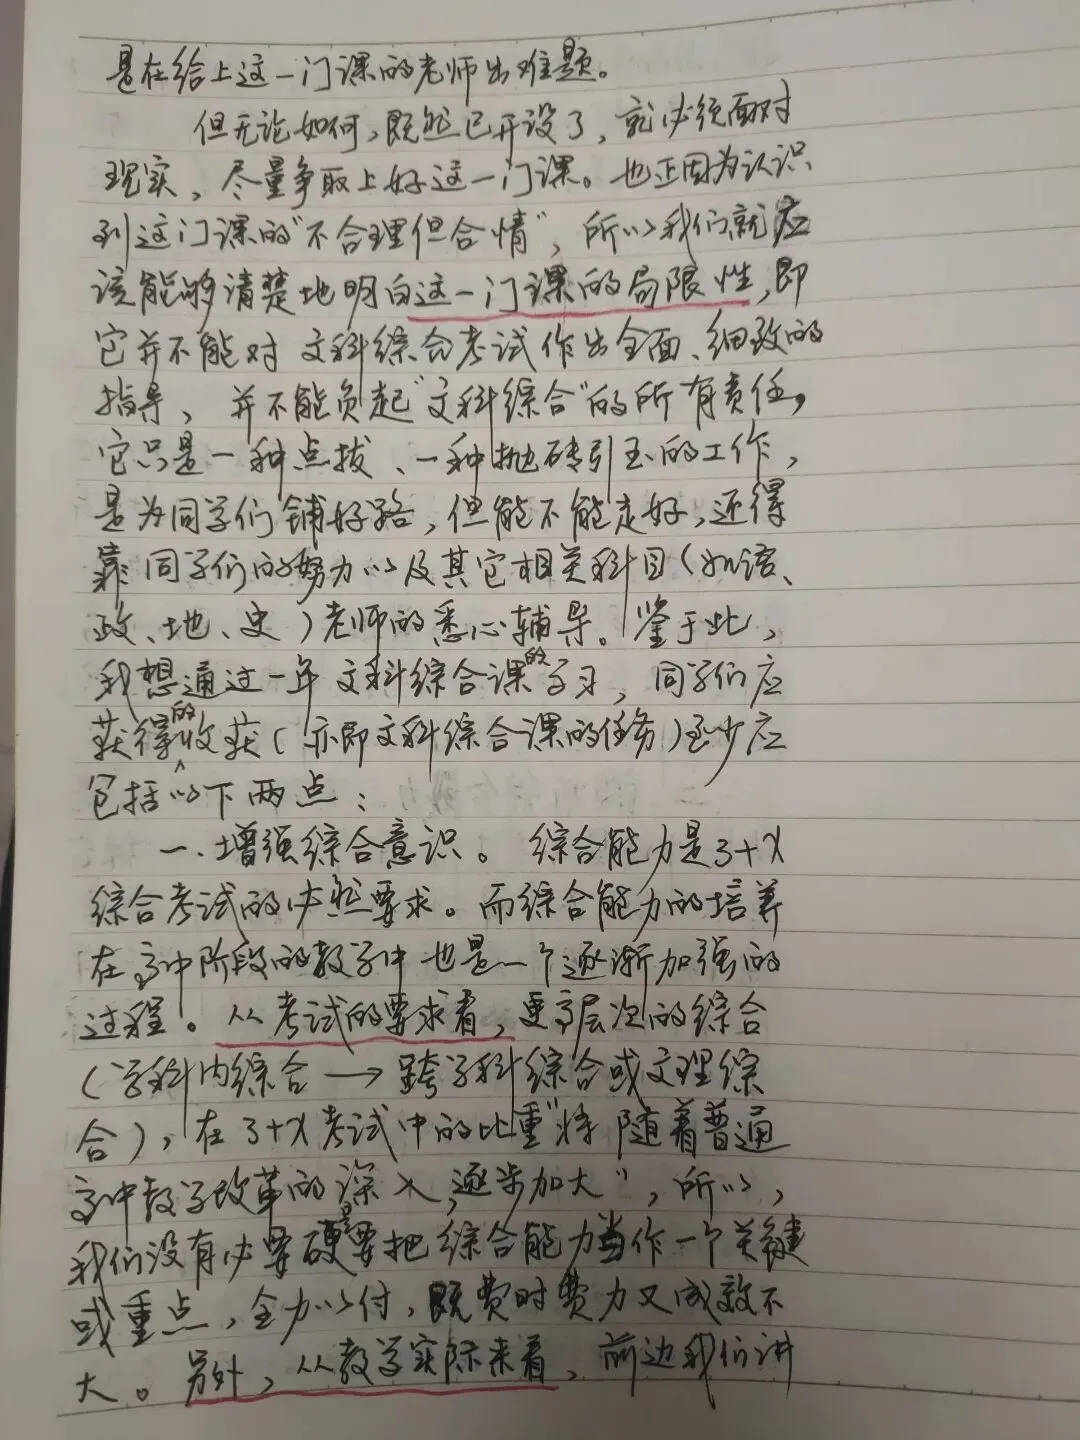 是在给上这一门课的老师出难题。
但无论如何，既然已开设了，就必须面对
现实，尽量争取上好这一门课。也正因为认识
到这门课的“不合理但合情”，所以我们就应
该能够清楚地明白这一门课的局限性，即
它并不能对文科综合考试作出全面、细致的
指导，并不能负起“文科综合”的所有责任，
它只是一种点拔、一种抛砖引玉的工作，
是为同学们铺好路，但能不能走好，还得
靠同学们的努力以及其它相关科目（如语、
政、地、史）老师的悉心辅导。鉴于此，
我想通过一年文科综合课的学习，同学们应
获得的收获（亦即文科综合课的任务）至少应
包括以下两点：
一、增强综合意识。综合能力是3+X
综合考试的必然要求。而综合能力的培养
在高中阶段的教学中也是一个逐渐加强的
过程。从考试的要求看，更高层次的综合
（学科内综合→跨学科综合或文理综
合），在3+X考试中的比重“将随着普通
高中教学改革的深入，逐步加大”，所以，
我们没有必要硬要把综合能力当作一个关键
或重点，全力以付，既费时费力又成效不
大。另外，从教学实际来看，前边我们讲